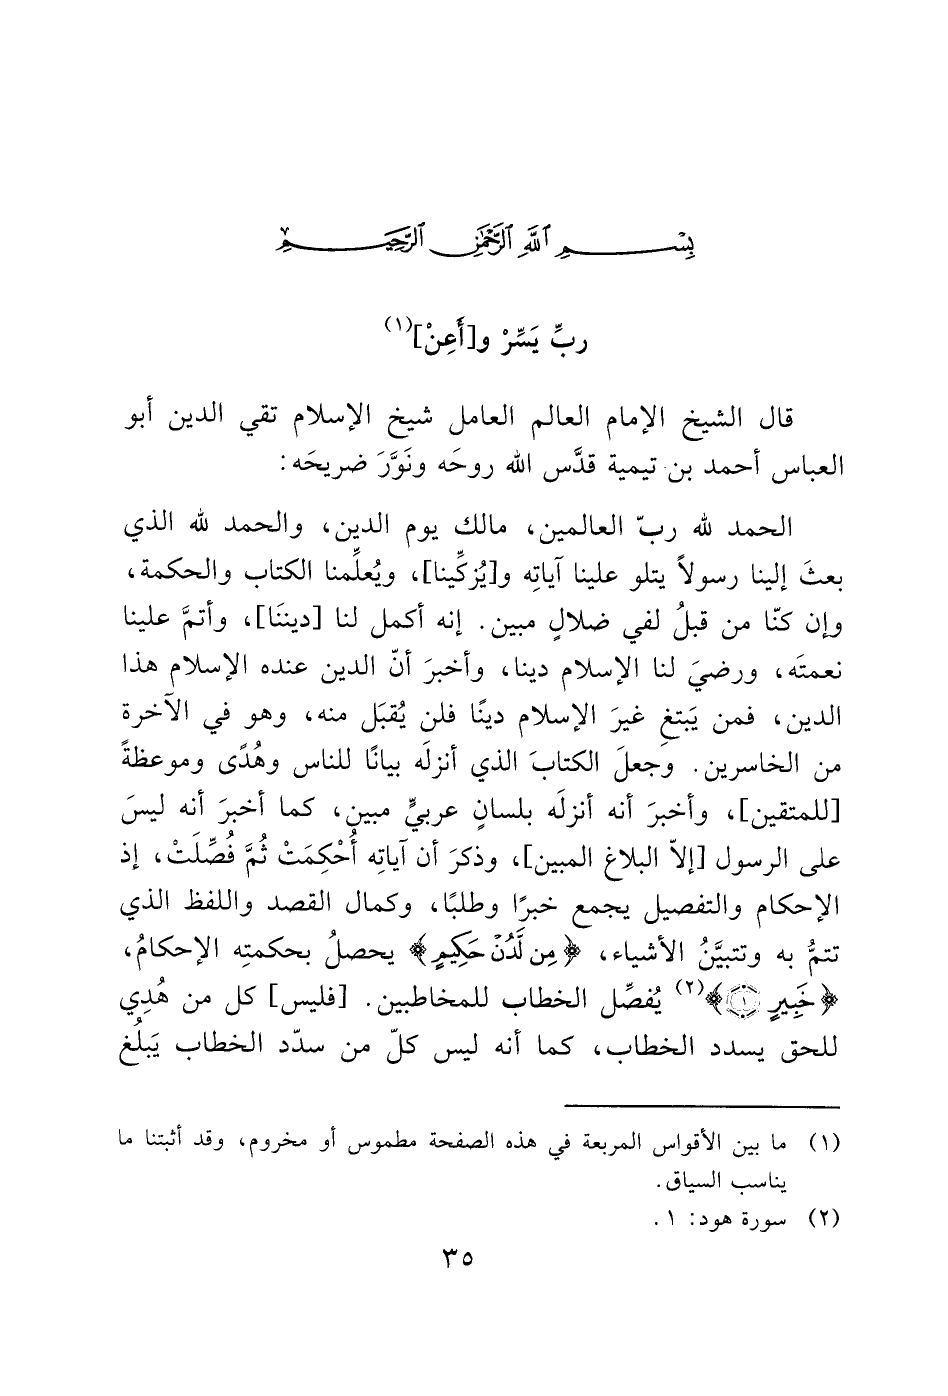 بِسْمِ اللَّهِ الرَّحْمَٰنِ الرَّحِيمِ
ربِّ يَسِّرْ و[أَعِنْ](١)
قال الشيخ الإمام العالم العامل شيخ الإسلام تقي الدين أبو
العباس أحمد بن تيمية قدَّس الله روحَه ونَوَّرَ ضريحَه:
الحمد لله ربّ العالمين، مالك يوم الدين، والحمد لله الذي
بعثَ إلينا رسولاً يتلو علينا آياتِه و[يُزكِّينا]، ويُعلِّمنا الكتاب والحكمة،
وإن كنّا من قبلُ لفي ضلالٍ مبين. إنه أكمل لنا [ديننَا]، وأتمَّ علينا
نعمتَه، ورضيَ لنا الإسلام دينا، وأخبرَ أنّ الدين عنده الإسلام هذا
الدين، فمن يَبتغِ غيرَ الإسلام دينًا فلن يُقبَل منه، وهو في الآخرة
من الخاسرين. وجعلَ الكتابَ الذي أنزلَه بيانًا للناس وهُدًى وموعظةً
[للمتقين]، وأخبرَ أنه أنزلَه بلسانٍ عربيٍّ مبين، كما أخبرَ أنه ليسَ
على الرسول [إلاّ البلاغ المبين]، وذكرَ أن آياتِه أُحْكِمَتْ ثُمَّ فُصِّلَتْ، إذ
الإحكام والتفصيل يجمع خبرًا وطلبًا، وكمال القصد واللفظ الذي
تتمُّ به وتتبيَّنُ الأشياء، ﴿مِن لَّدُنْ حَكِيمٍ﴾ يحصلُ بحكمتِه الإحكامُ،
﴿خَبِيرٍ ١﴾(٢) يُفصِّل الخطاب للمخاطبين. [فليس] كل من هُدِي
للحق يسدد الخطاب، كما أنه ليس كلّ من سدّد الخطاب يَبلُغ
(١) ما بين الأقواس المربعة في هذه الصفحة مطموس أو مخروم، وقد أثبتنا ما
يناسب السياق.
(٢) سورة هود: ١.
٣٥